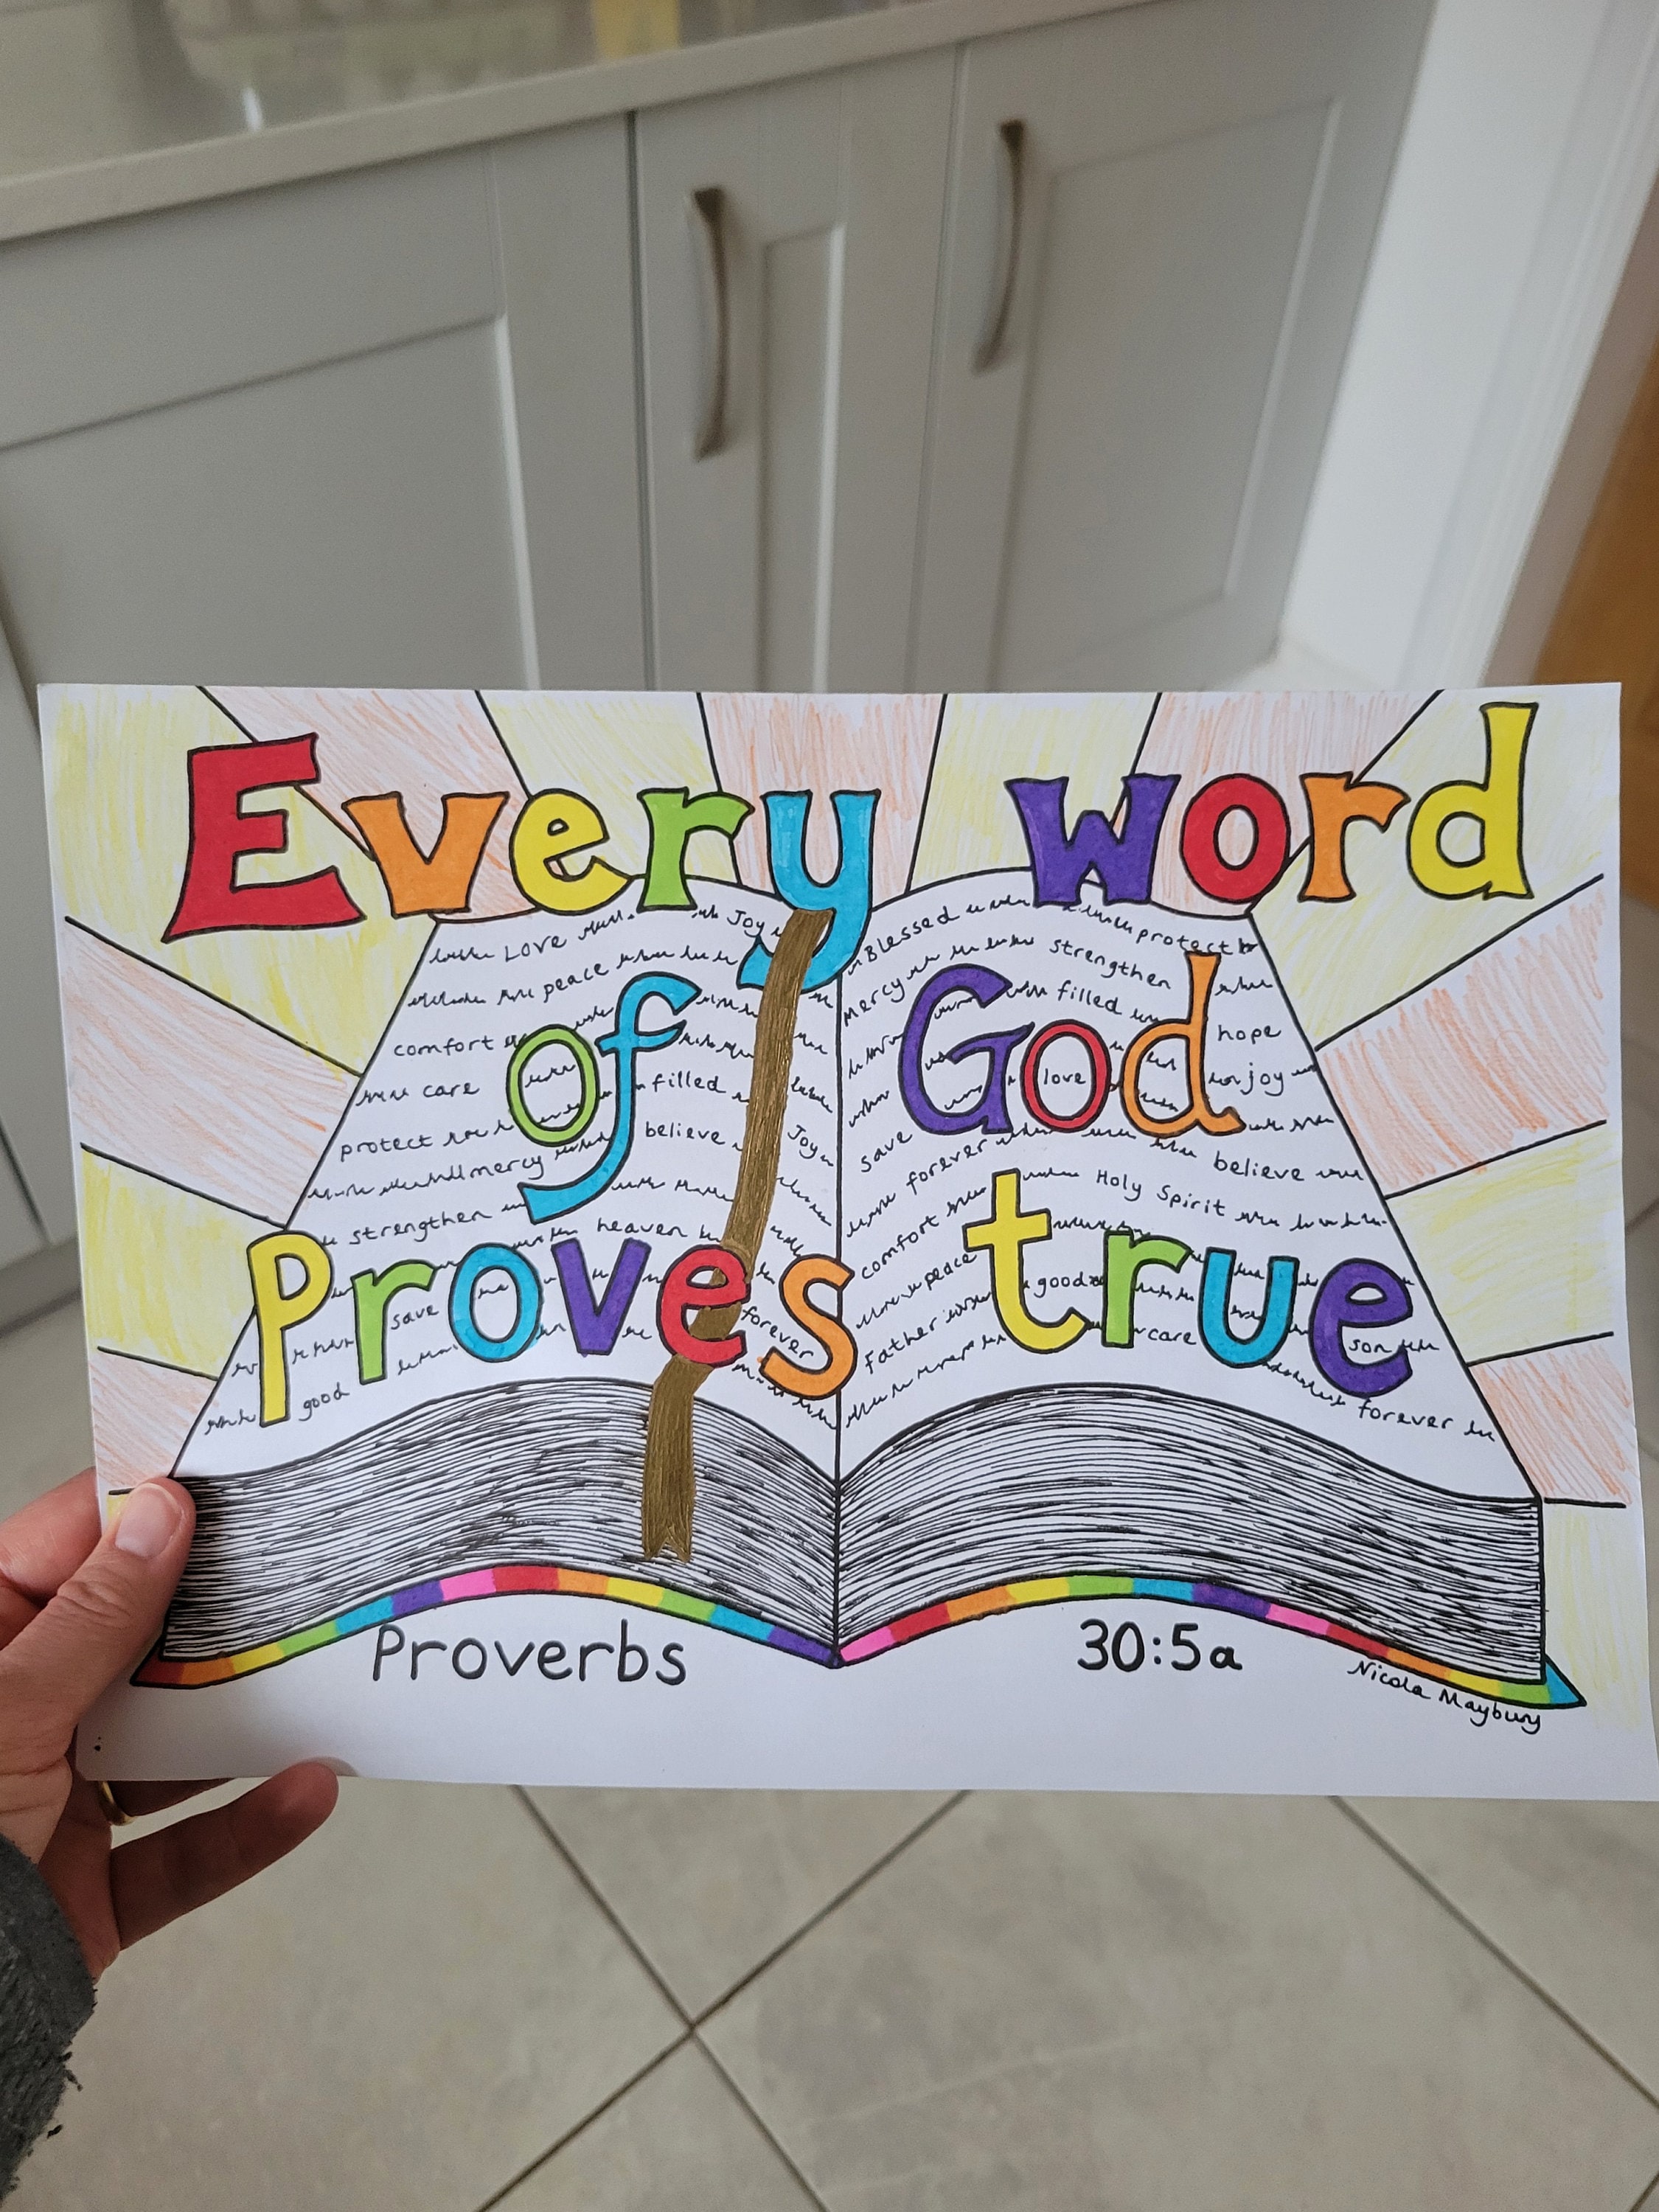 Every word
of God
Proves true
Love Joy
peace
comfort
care filled
protect believe Joy
mercy
strengthen
heaven
save
forever
good
Blessed protect
Mercy strengthen
filled hope
love joy
save
forever believe
comfort Holy Spirit
peace good
Father care son
forever
Proverbs 30:5a
Nicola Maybury